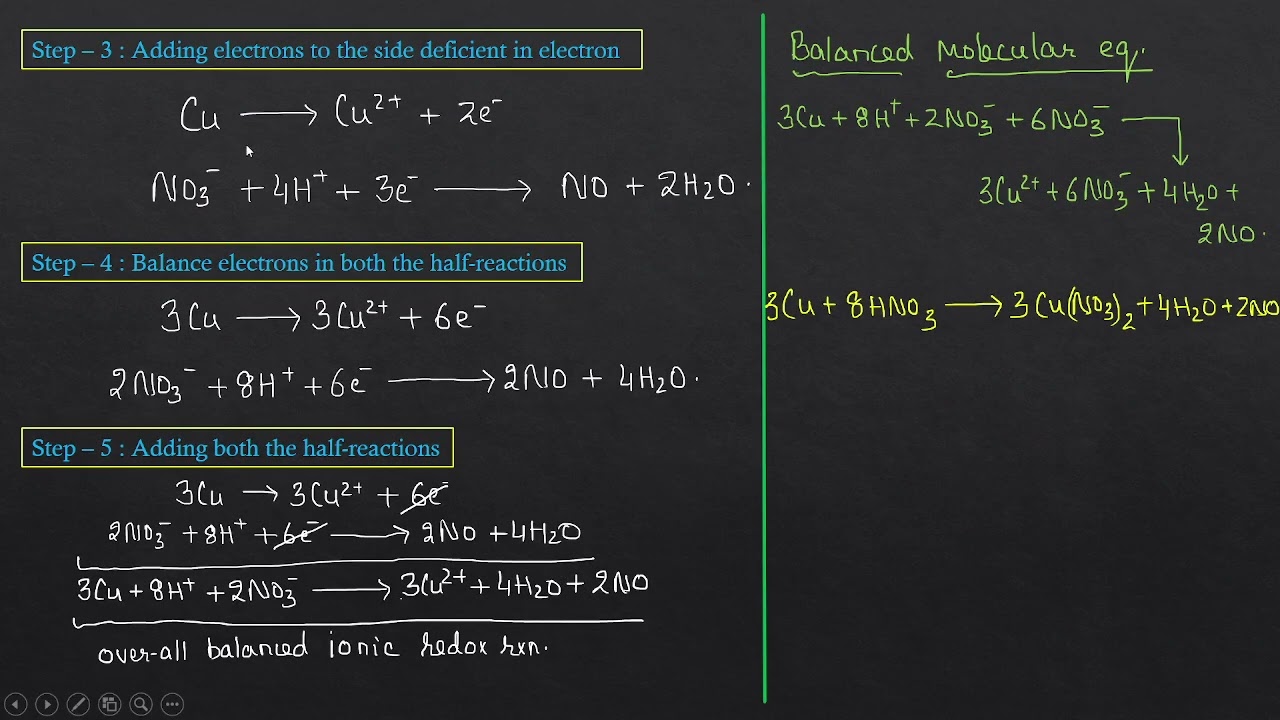 Step – 3 : Adding electrons to the side deficient in electron
Cu ⟶ Cu²⁺ + 2e⁻
NO₃⁻ + 4H⁺ + 3e⁻ ⟶ NO + 2H₂O.
Step – 4 : Balance electrons in both the half-reactions
3Cu ⟶ 3Cu²⁺ + 6e⁻
2NO₃⁻ + 8H⁺ + 6e⁻ ⟶ 2NO + 4H₂O.
Step – 5 : Adding both the half-reactions
3Cu ⟶ 3Cu²⁺ + 6e⁻
2NO₃⁻ + 8H⁺ + 6e⁻ ⟶ 2NO + 4H₂O
3Cu + 8H⁺ + 2NO₃⁻ ⟶ 3Cu²⁺ + 4H₂O + 2NO
over-all balanced ionic redox rxn.
Balanced Molecular eq.
3Cu + 8H⁺ + 2NO₃⁻ + 6NO₃⁻ ⟶
3Cu²⁺ + 6NO₃⁻ + 4H₂O +
2NO.
3Cu + 8HNO₃ ⟶ 3Cu(NO₃)₂ + 4H₂O + 2NO